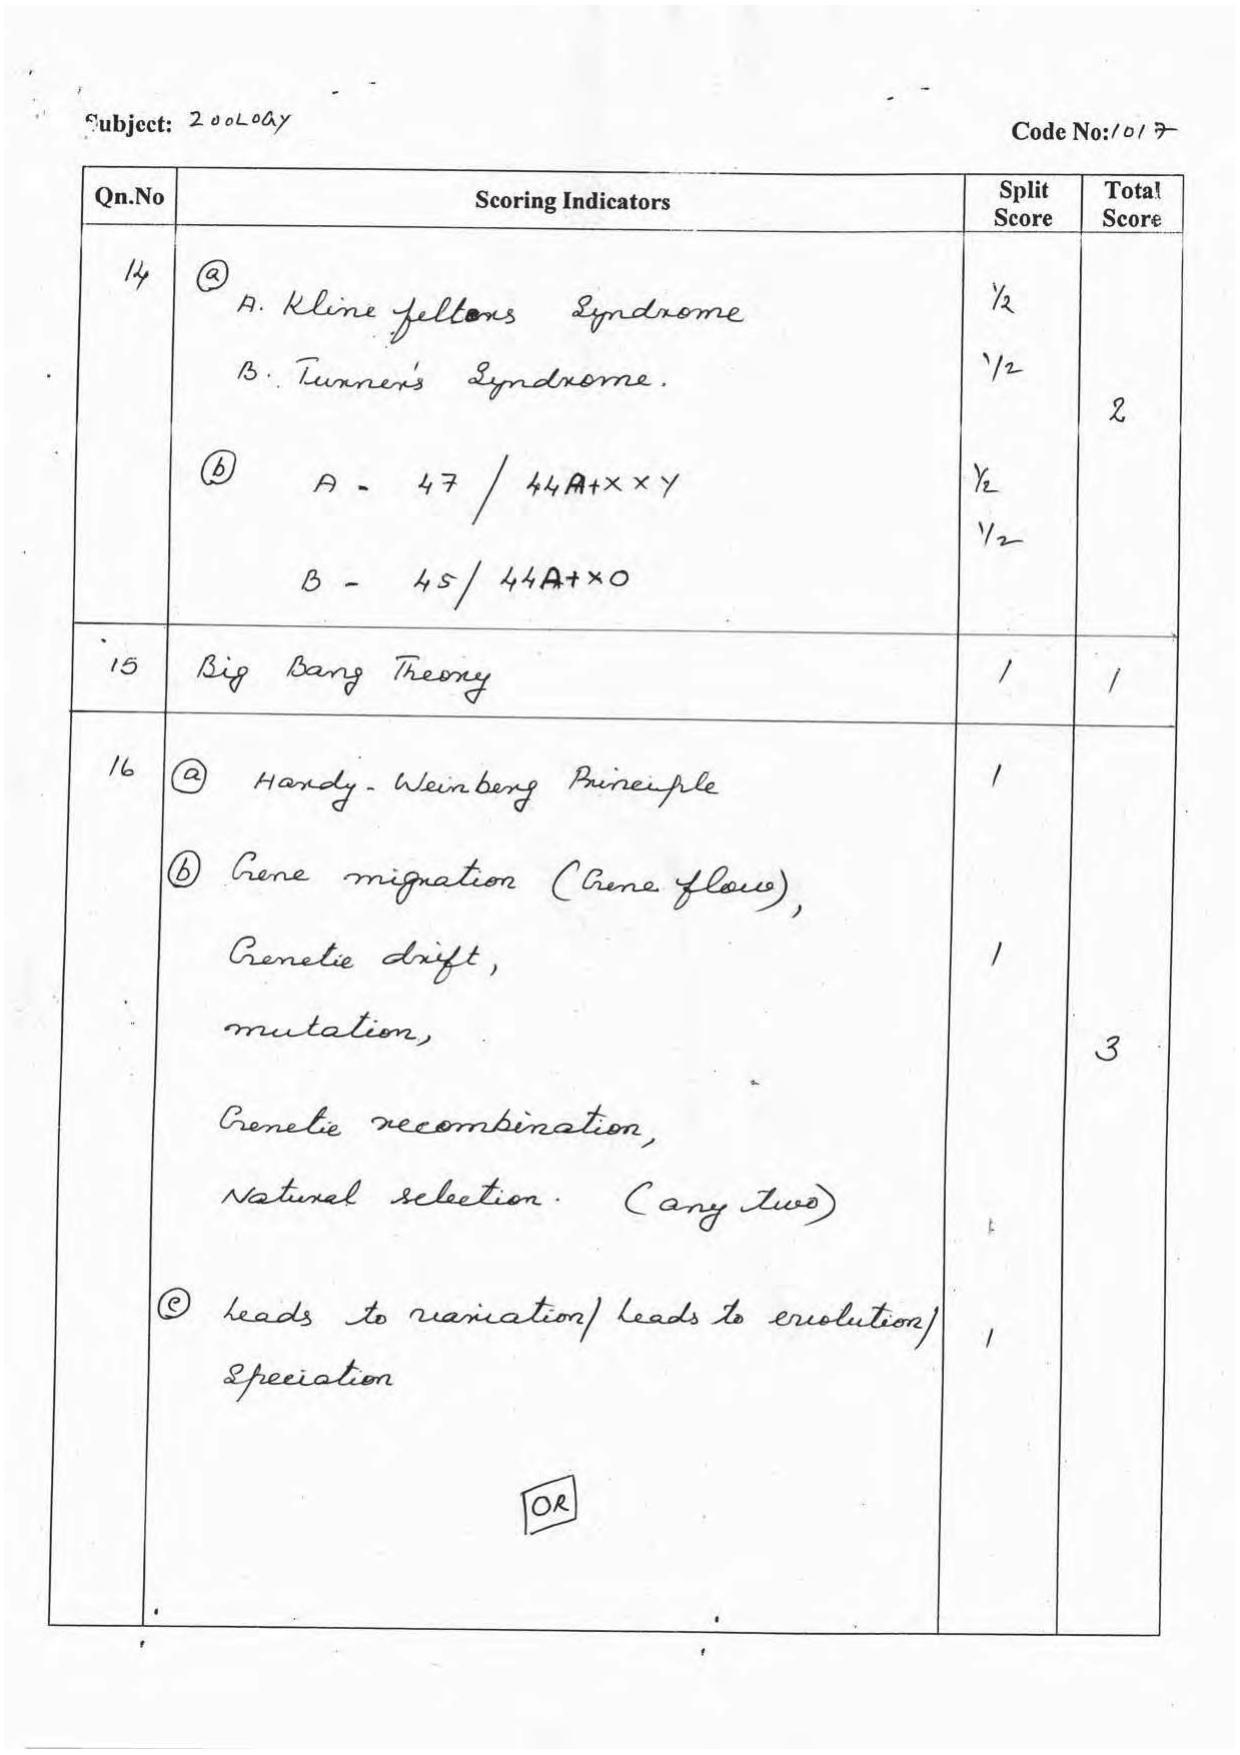 Subject: ZOOLOGY
Code No: 1017
Qn.No Scoring Indicators Split Score Total Score
14 (a)
A. Kline feltens Syndrome 1/2
B. Turner's Syndrome. 1/2
2
(b) A - 47 / 44A+XXY 1/2
1/2
B - 45 / 44A+XO
15 Big Bang Theory 1 1
16 (a) Hardy-Weinberg Principle 1
(b) Gene migration (Gene flow),
Genetic drift, 1
mutation,
3
Genetic recombination,
Natural selection. (any two)
(c) Leads to variation/ Leads to evolution/ 1
Speciation
OR